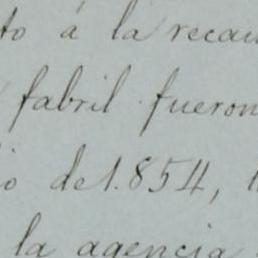 to á la recau
fabril fueron
io de 1.854,
la agencia